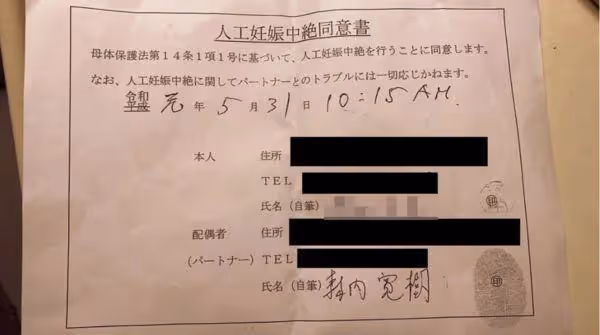 人工妊娠中絶同意書
母体保護法第14条1項1号に基づいて、人工妊娠中絶を行うことに同意します。
なお、人工妊娠中絶に関してパートナーとのトラブルには一切応じかねます。
令和
平成 元年 5月31日 10:15AM.
本人 住所
TEL
氏名(自筆) ㊞
配偶者 住所
(パートナー) TEL
氏名(自筆) 内 寛樹 ㊞